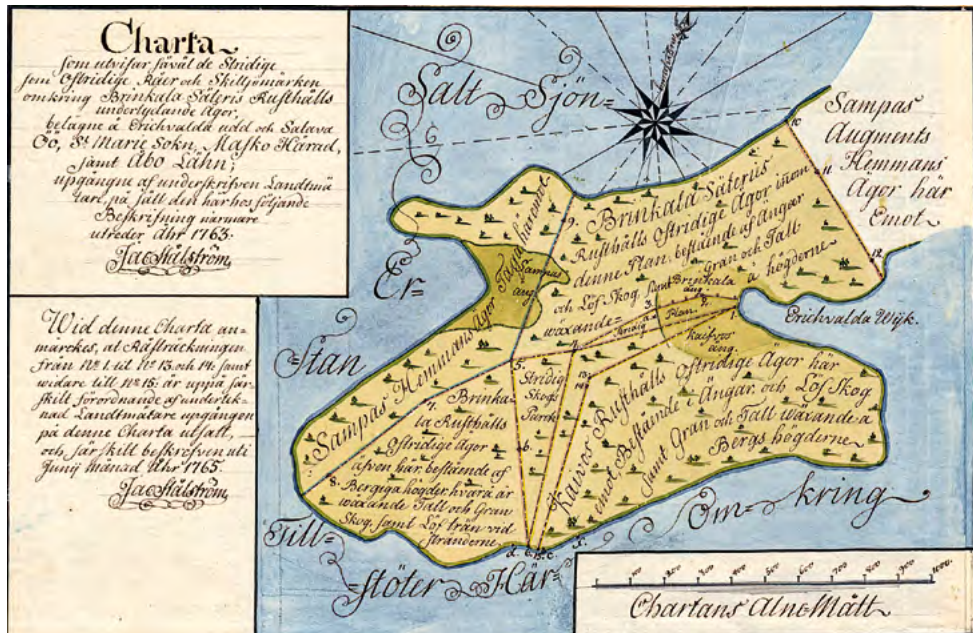 Charta
som utvisar såväl de Stridige
som Ostridige Råer och Skilljemärken
omkring Brinkala Säteris Rusthålls
underlydande Ägor,
belägne å Erichvalda udd och Salava
Öö, St Marie Sokn, Masko Härad,
samt Åbo Lähn;
upgångne af underskrifven Landtmä
tare, på sätt den här hos följande
Beskrifning närmare
utreder Åhr 1763.
Jac Stålström
Wid denne Charta an-
märckes, at Råsträckningen
från No 1. til No 13. och 14. samt
widare till No 15. är uppå sär-
skilt förordnande af underteck-
nad Landtmätare upgången
på denne Charta utsatt,
och särskilt beskrefven uti
Junij månad Åhr 1765.
Jac Stålström
Salt Sjön=
Er=
Stan
Till=
Stöter Här=
Om=
kring
Sampas
Augments
Hemmans
Ägor här
Emot
10.
11.
12.
9.
Brinkala Säteris
Rusthålls Ostridige Ägor inom
denne Plan, bestående af Ängar
och Löf Skog, samt Gran och Tall
wäxande
å högderne
Brinkala
äng
Sampas
äng
Sampas Hemmans ägor
häremot
Erichvalda Wijk.
Plan.
3.
2.
1.
4.
5.
13.
14.
6.
7.
8.
Kaivos
äng.
Stridig
Skogs
Parck
Brinka-
la Rusthålls
Ostridige Ägor
äfven här, bestående af
Bergiga högder, hvarå är
wäxande Tall och Gran
Skog, samt Löf trän vid
stränderne.
Kaivos Rusthålls Ostridige Ägor här
emot, Bestående i Ängar, och Löf Skog
samt Gran och Tall wäxande å
Bergs högderne
d.
c.
x.
100 200 300 400 500 600 700 800 900 1000.
Chartans Alne Mått